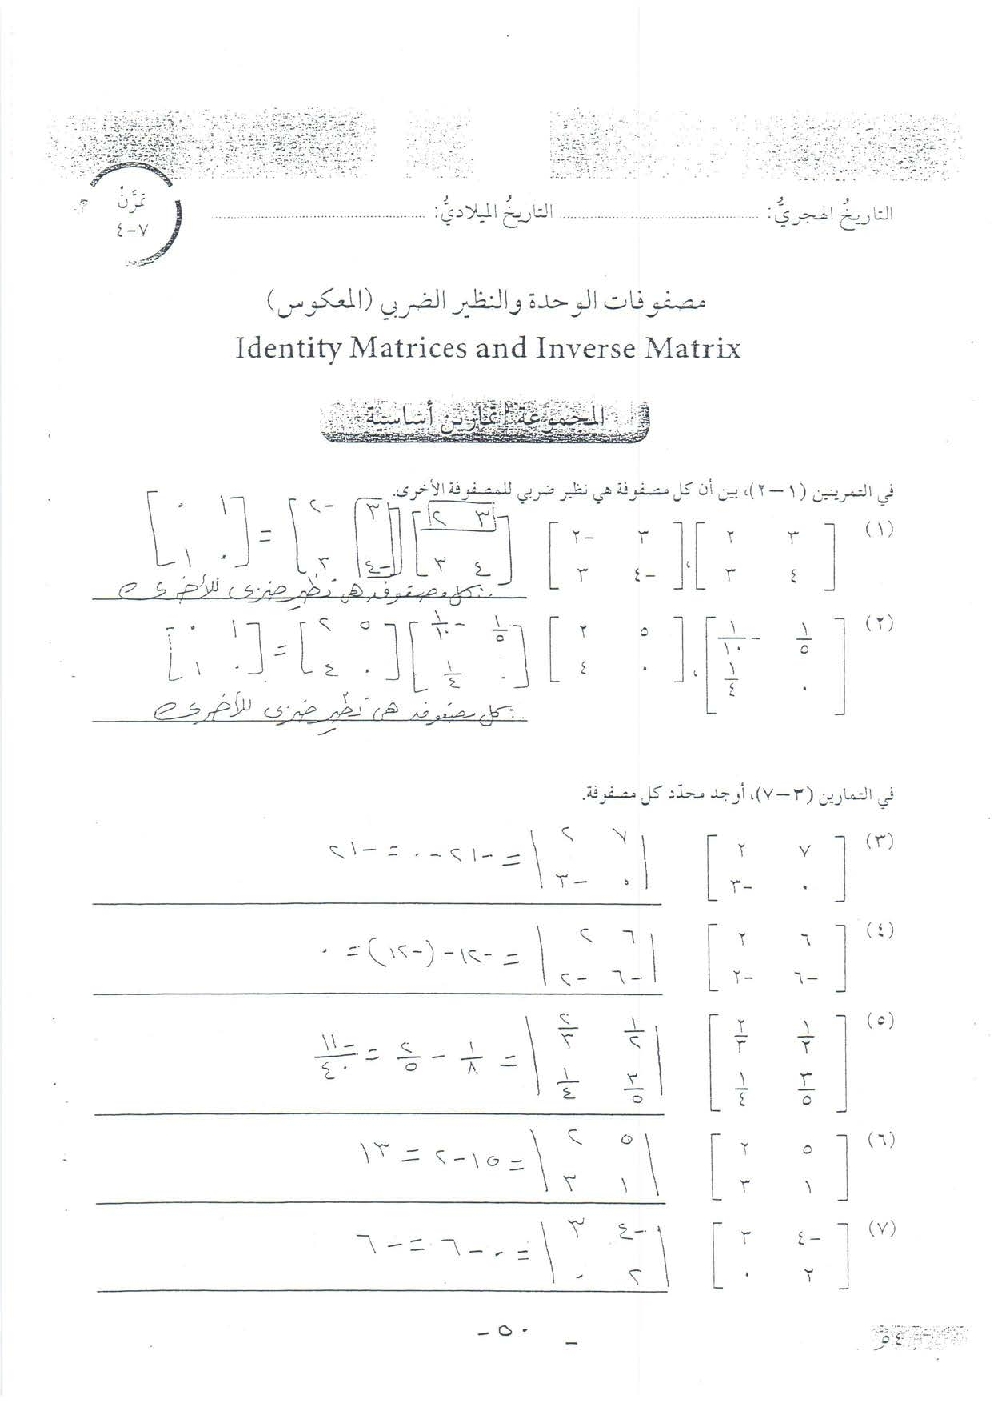 التاريخُ الهجريُّ: التاريخُ الميلاديُّ:
تمَرَّنْ
٧-٤
مصفوفات الوحدة والنظير الضربي (المعكوس)
Identity Matrices and Inverse Matrix
المجموعة أ تمارين أساسية
في التمرينين (١-٢)، بين أن كل مصفوفة هي نظير ضربي للمصفوفة الأخرى.
(١) [٣ ٢ / ٤ ٣]، [٣ -٢ / -٤ ٣] [٣ ٢ / ٤ ٣] [٣ -٢ / -٤ ٣] = [١ ٠ / ٠ ١]
∴ كل مصفوفة هي نظير ضربي للأخرى
(٢) [١/٥ -١/١٠ / ٠ ١/٤]، [٥ ٢ / ٠ ٤] [١/٥ -١/١٠ / ٠ ١/٤] [٥ ٢ / ٠ ٤] = [١ ٠ / ٠ ١]
∴ كل مصفوفة هي نظير ضربي للأخرى
في التمارين (٣-٧)، أوجد محدّد كل مصفوفة.
(٣) [٧ ٢ / ٠ -٣] |٧ ٢ / ٠ -٣| = -٢١ - ٠ = -٢١
(٤) [٦ ٢ / -٦ -٢] |٦ ٢ / -٦ -٢| = -١٢ - (-١٢) = ٠
(٥) [١/٢ ٢/٣ / ٣/٥ ١/٤] |١/٢ ٢/٣ / ٣/٥ ١/٤| = ١/٨ - ٢/٥ = -١١/٤٠
(٦) [٥ ٢ / ١ ٣] |٥ ٢ / ١ ٣| = ١٥ - ٢ = ١٣
(٧) [-٤ ٣ / ٢ ٠] |-٤ ٣ / ٢ ٠| = ٠ - ٦ = -٦
-٥٠-
٥٤